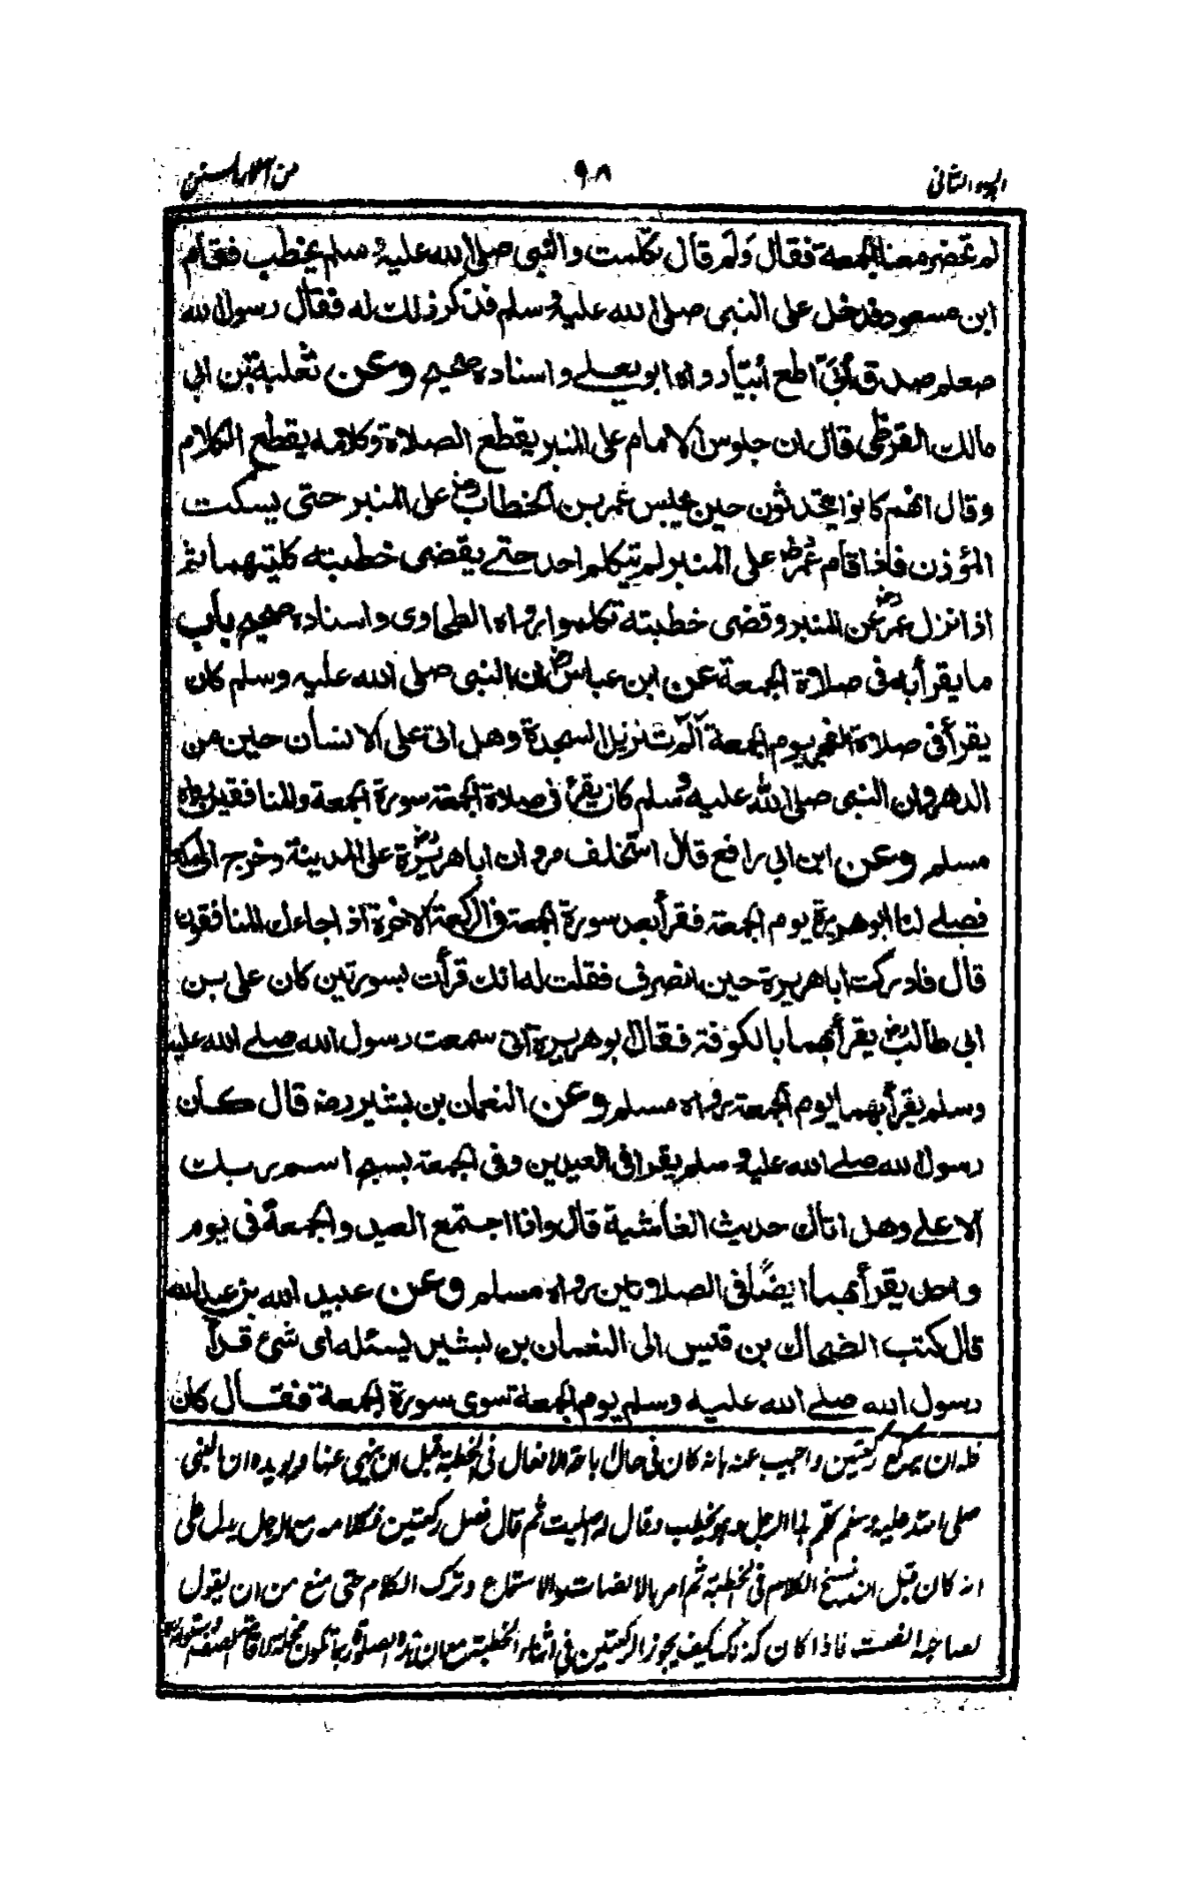 الجزء الثاني
٩٨
من آثار السنن
لم تحضر معنا الجمعة فقال ولم قال تكلمت والنبي صلى الله عليه وسلم يخطب فقام
ابن مسعود فدخل على النبي صلى الله عليه وسلم فذكر ذلك له فقال رسول الله
صعلم صدق أُبَيّ اطع أبيّا رواه ابو يعلى واسناده صحيح وعن ثعلبة بن ابي
مالك القرظي قال ان جلوس الامام على المنبر يقطع الصلاة وكلامه يقطع الكلام
وقال انهم كانوا يتحدثون حين يجلس عمر بن الخطاب رض على المنبر حتى يسكت
المؤذن فاذا قام عمر رض على المنبر لم يتكلم احد حتى يقضى خطبته كلتيهما ثم
اذا نزل عمر رض عن المنبر وقضى خطبته تكلموا رواه الطحاوى واسناده صحيح باب
ما يقرأ به في صلاة الجمعة عن ابن عباس رض ان النبي صلى الله عليه وسلم كان
يقرأ في صلاة الفجر يوم الجمعة آلم تنزيل السجدة وهل اتى على الانسان حين من
الدهر وان النبي صلى الله عليه وسلم كان يقرأ في صلاة الجمعة سورة الجمعة والمنافقين رواه
مسلم وعن ابن ابي رافع قال استخلف مروان ابا هريرة رض على المدينة وخرج الى مكة
فصلى لنا ابو هريرة يوم الجمعة فقرأ بعد سورة الجمعة في الركعة الاخرة اذا جاءك المنافقون
قال فادركت ابا هريرة حين انصرف فقلت له انك قرأت بسورتين كان علي بن
ابي طالب رض يقرأ بهما بالكوفة فقال ابو هريرة اني سمعت رسول الله صلى الله عليه
وسلم يقرأ بهما يوم الجمعة رواه مسلم وعن النعمان بن بشير رضـ قال كان
رسول الله صلى الله عليه وسلم يقرا في العيدين وفي الجمعة بسبح اسم ربك
الاعلى وهل اتاك حديث الغاشية قال واذا اجتمع العيد والجمعة في يوم
واحد يقرأ بهما ايضًا في الصلاتين رواه مسلم وعن عبيد الله بن عبد الله
قال كتب الضحاك بن قيس الى النعمان بن بشير يسئله اى شئ قرأ
رسول الله صلى الله عليه وسلم يوم الجمعة سوى سورة الجمعة فقال كان
فله ان يركع ركعتين واجيب عنه بانه كان في حال اباحة الافعال في الخطبة قبل ان ينهى عنها ويؤيده ان النبي
صلى الله عليه وسلم كلم الرجل وهو يخطب وقال له اصليت ثم قال فصل ركعتين فكلامه مع الرجل يدل على
انه كان قبل ان ينسخ الكلام في الخطبة ثم امر بالانصات والاستماع وترك الكلام حتى منع من ان يقول
لصاحبه انصت فاذا كان كذلك كيف يجوز الركعتين في اثناء الخطبة مع ان هذه الصلوة ربما تكون